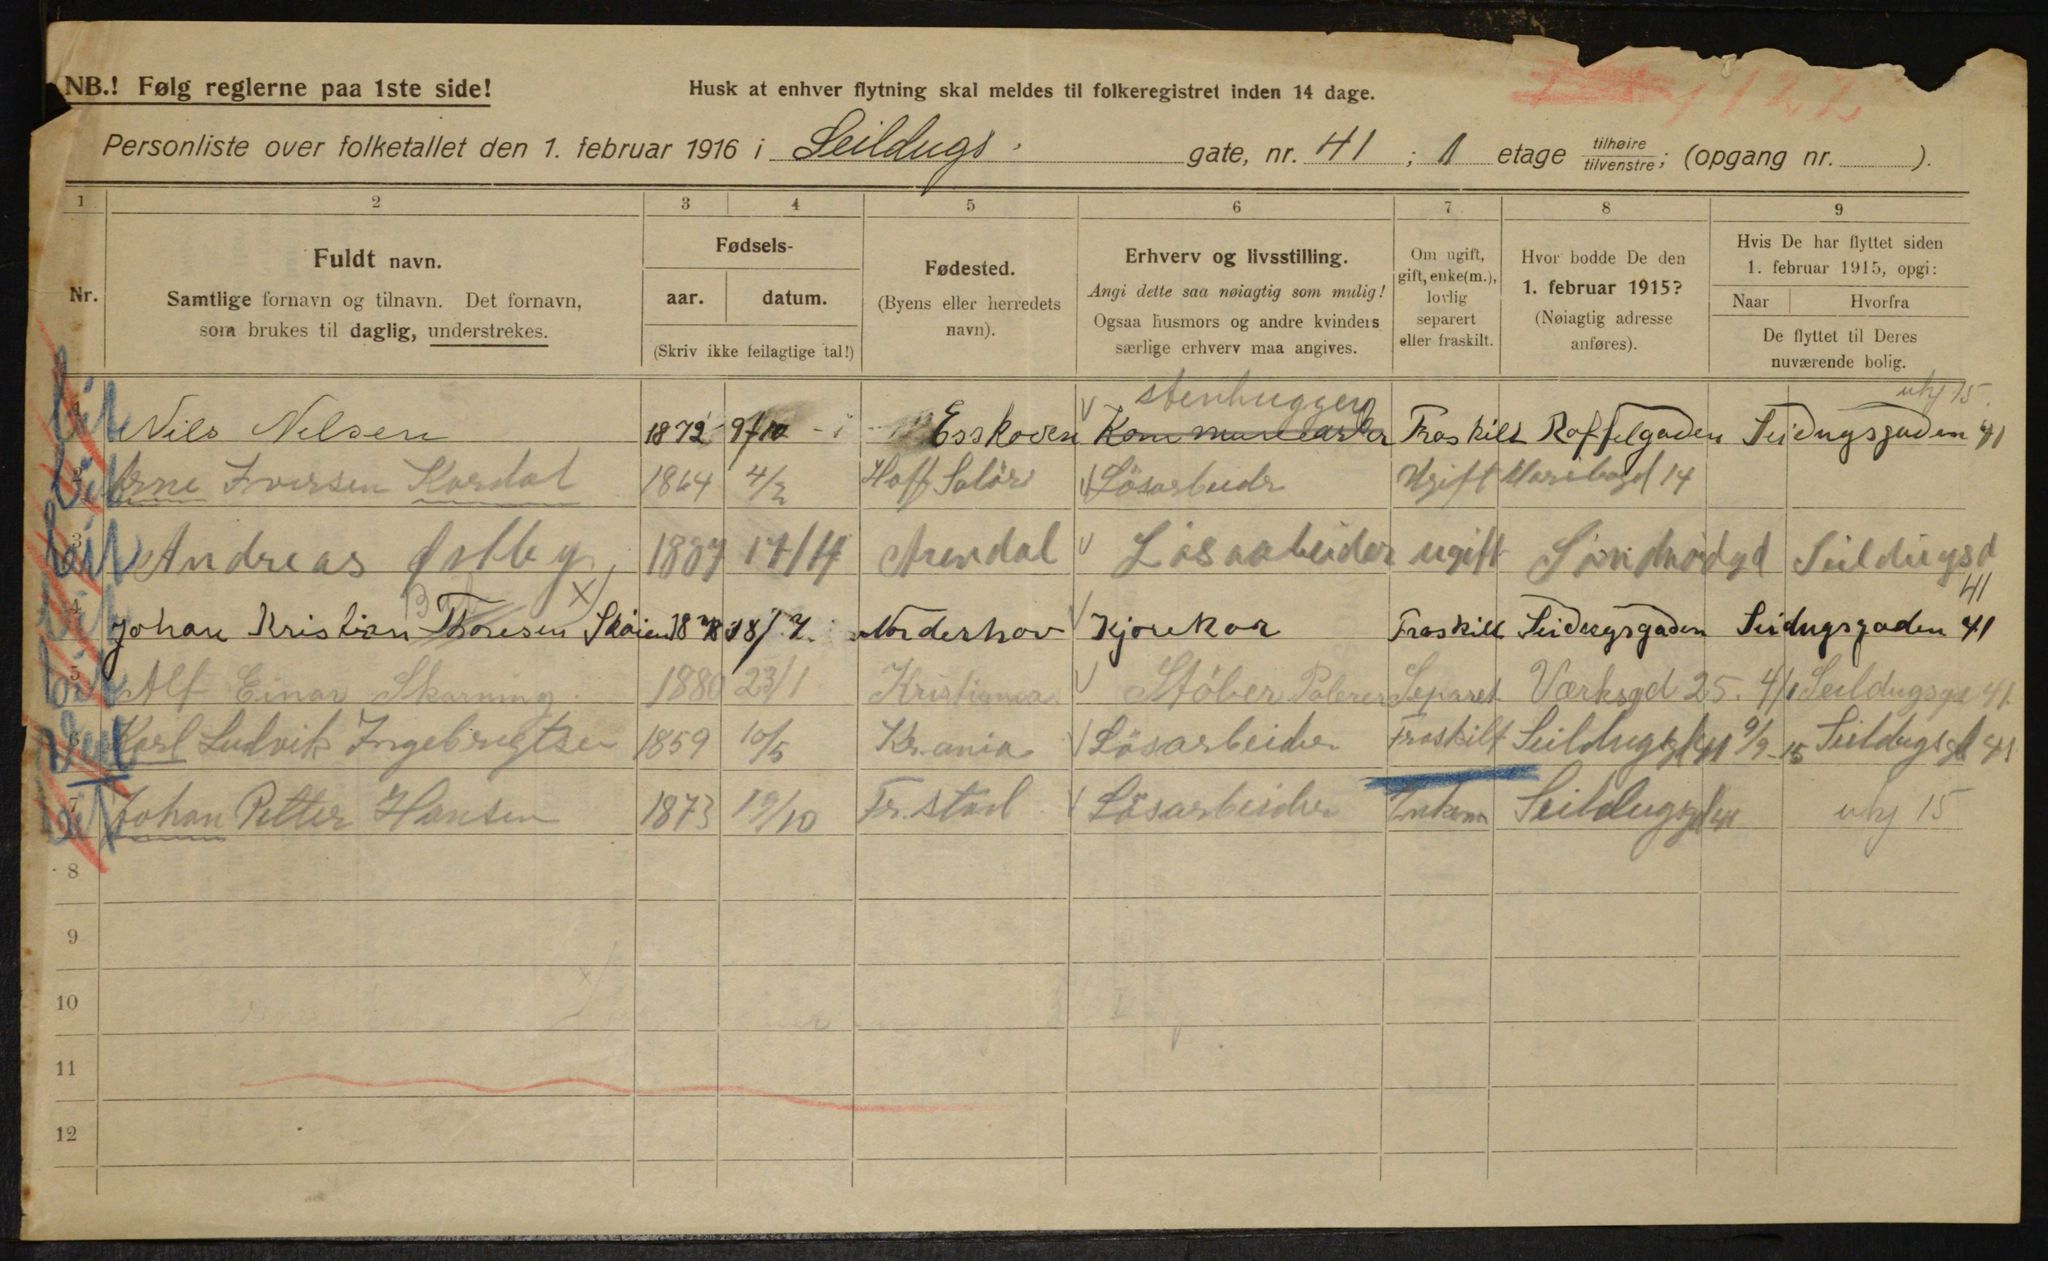 NB.! Følg reglerne paa 1ste side!
Husk at enhver flytning skal meldes til folkeregistret inden 14 dage.
1122
Personliste over folketallet den 1. februar 1916 i Seildugs. gate, nr. 41 ; 1 etage tilhøire tilvenstre; (opgang nr. ).
1 2 3 4 5 6 7 8 9
Nr.
Fuldt navn.
Samtlige fornavn og tilnavn. Det fornavn,
som brukes til daglig, understrekes.
Fødsels-
aar. datum.
(Skriv ikke feilagtige tal!)
Fødested.
(Byens eller herredets
navn).
Erhverv og livsstilling.
Angi dette saa nøiagtig som mulig!
Ogsaa husmors og andre kvinders
særlige erhverv maa angives.
Om ugift,
gift, enke(m.),
lovlig
separert
eller fraskilt.
Hvor bodde De den
1. februar 1915?
(Nøiagtig adresse
anføres).
Hvis De har flyttet siden
1. februar 1915, opgi:
Naar Hvorfra
De flyttet til Deres
nuværende bolig.
stenhugger
1 Nils Nilsen 1872 9/10 Esskoven Fraskilt Roffelgaden Seidugsgaden 41
2 Arne Iversen Kardal 1864 4/2 Hoff Solör Lösarbeidr Ugift Maribogd 14
3 Andreas Østby 1887 17/4 Arendal Løsarbeider ugift Seildugsd
41
4 Johan Kristian Thoresen Skoien 18/7 Norderhov Kjørekar Fraskilt Seidugsgaden Seidugsgaden 41
5 Alf Einar Skarning 1880 23/1 Kristiania Støber Polerer Separet Værksgd 25. Seildugsgd 41
6 Karl Ludvik Ingebrigtsen 1859 10/5 Kr.ania Lösarbeider Fraskilt Seildugsgd 41 9/9-15 Seildugsgd 41
7 Johan Petter Hansen 1873 19/10 Fr.stad Lösarbeider Enkem Seildugsgd 41
8
9
10
11
12